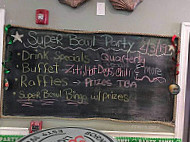 Super Bowl Party 2/3/02
• Drink Specials - Quarterly
• Buffet - Hot Dogs Chili & more
• Raffles - Prizes TBA
Super Bowl Bingo w/prizes!